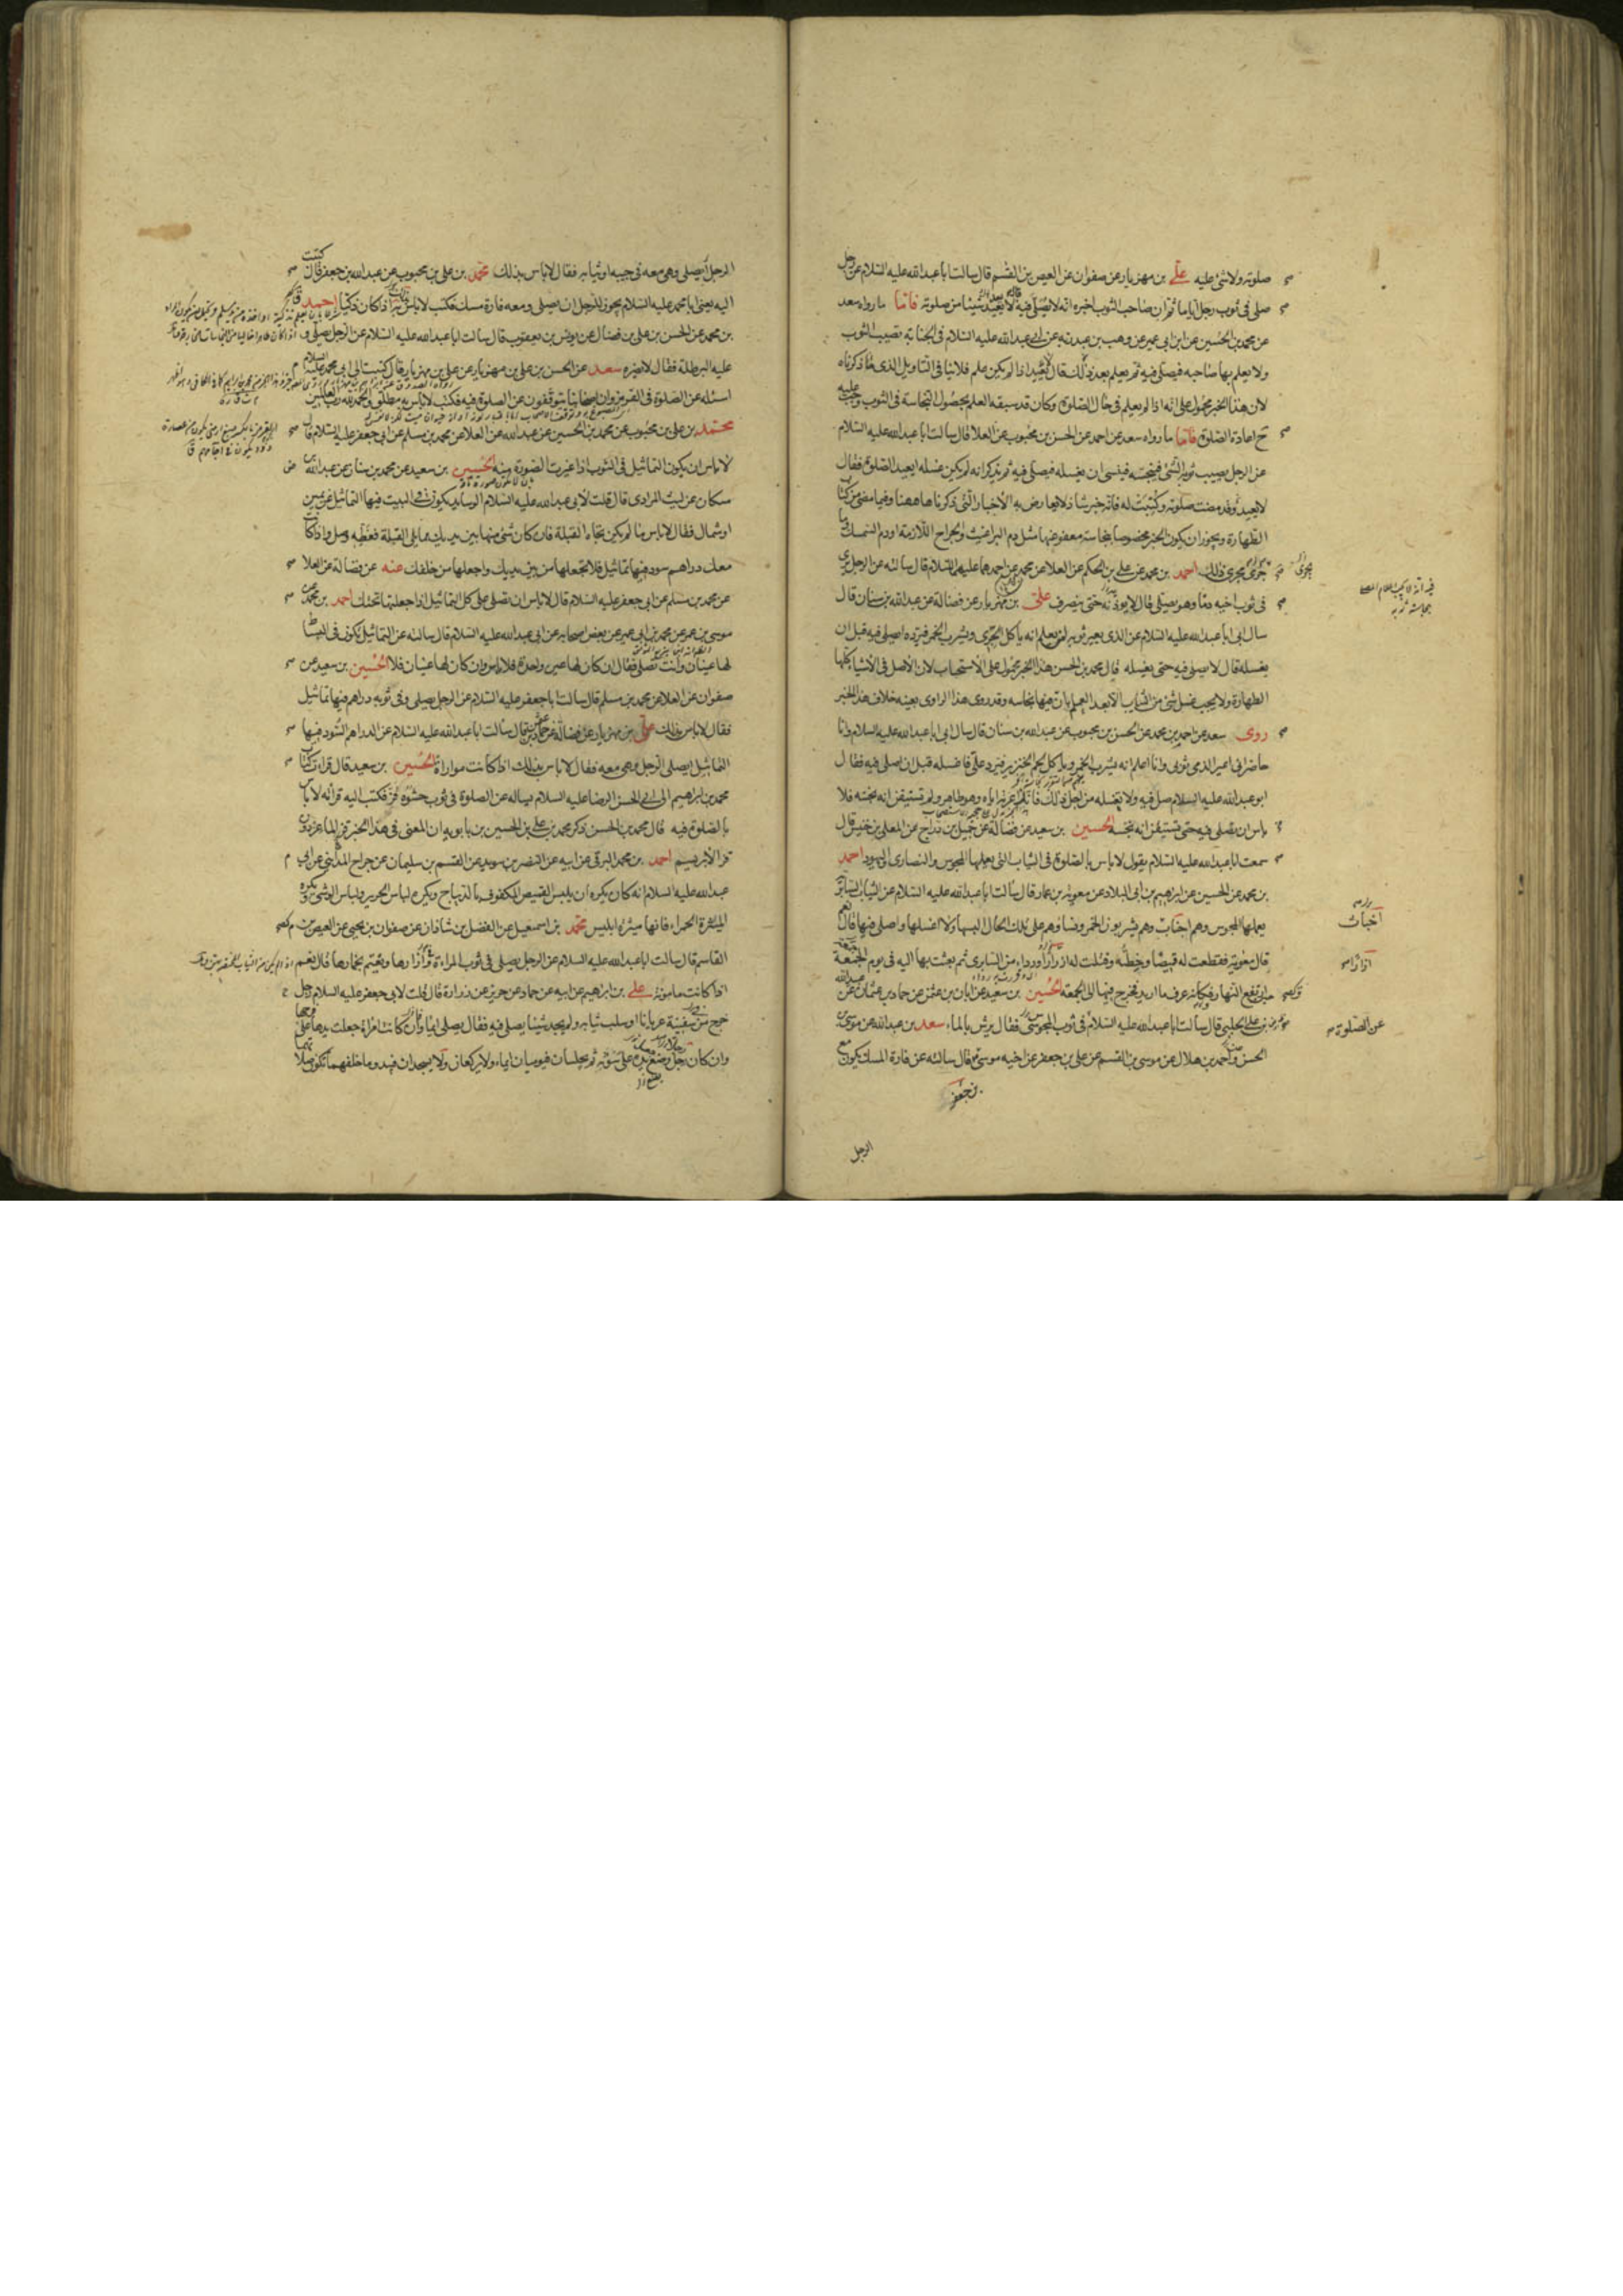 صلوته ولا شئ عليه علي بن مهزيار عن صفوان عن العيص بن القسم قال سالت ابا عبد الله عليه السلام عن رجل
صلى في ثوب رجل اياما ثم ان صاحب الثوب اخبره انه لا يصلى فيه قال لا يعيد شيئا من صلوته فاما ما رواه سعد
عن محمد بن الحسين عن ابن ابي عمير عن وهب بن عبد ربه عن ابي عبد الله عليه السلام في الجنابة تصيب الثوب
ولا يعلم بها صاحبه فيصلى فيه ثم يعلم بعد ذلك قال يعيد اذا لم يكن علم فلا ينافي التاويل الذي ذكرناه
لان هذا الخبر محمول على انه اذا لم يعلم في حال الصلوة وكان قد سبقه العلم بحصول النجاسة في الثوب وجب عليه
ح اعادة الصلوة فاما ما رواه سعد عن احمد عن الحسن بن محبوب عن العلا قال سالت ابا عبد الله عليه السلام
عن الرجل يصيب ثوبه الشئ فينجسه فينسى ان يغسله فيصلى فيه ثم يذكر انه لم يكن غسله ايعيد الصلوة فقال
لا يعيد وقد مضت صلوته وكتبت له فانه خبر شاذ لا يعارض به الاخبار التي ذكرناها هاهنا وفيما مضى من كتاب
الطهارة ويجوز ان يكون الخبر مخصوصا بنجاسة معفو عنها مثل دم البراغيث والجراح اللازمة او دم السمك وما
جرى مجرى ذلك احمد بن محمد عن علي بن الحكم عن العلا عن محمد عن احدهما عليهما السلام قال سالته عن الرجل يرى
في ثوب اخيه دما وهو يصلى قال لا يؤذنه حتى ينصرف علي بن مهزيار عن فضالة عن عبد الله بن سنان قال
سال ابي ابا عبد الله عليه السلام عن الذي يعير ثوبه لمن يعلم انه ياكل الجرى ويشرب الخمر فيرده ايصلى فيه قبل ان
يغسله قال لا يصلى فيه حتى يغسله قال محمد بن الحسن هذا الخبر محمول على الاستحباب لان الاصل في الاشياء كلها
الطهارة ولا يجب غسل شئ من الثياب الا بعد العلم بان فيها نجاسه وقد روى هذا الراوى بعينه خلاف هذا الخبر
روى سعد عن احمد بن محمد عن الحسن بن محبوب عن عبد الله بن سنان قال سال ابي ابا عبد الله عليه السلام وانا
حاضر اني اعير الذمي ثوبي وانا اعلم انه يشرب الخمر وياكل لحم الخنزير فيرد علي فاغسله قبل ان اصلى فيه فقال
ابو عبد الله عليه السلام صل فيه ولا تغسله من اجل ذلك فانك اعرته اياه وهو طاهر ولم تستيقن انه نجسه فلا
باس ان تصلى فيه حتى تستيقن انه نجسه الحسين بن سعيد عن فضالة عن جميل بن دراج عن المعلى بن خنيس قال
سمعت ابا عبد الله عليه السلام يقول لا باس بالصلوة في الثياب التي يعملها المجوس والنصارى واليهود احمد
بن محمد عن الحسين عن ابرهيم بن ابي البلاد عن معوية بن عمار قال سالت ابا عبد الله عليه السلام عن الثياب السابرية
يعملها المجوس وهم اخباث وهم يشربون الخمر ونساؤهم على تلك الحال البسها ولا اغسلها واصلى فيها قال نعم
قال معوية فقطعت له قميصا وخطته وفتلت له ازرارا ورداء من السابرى ثم بعثت بها اليه في يوم الجمعة
حين ارتفع النهار فكانه عرف ما اريد فخرج فيها الى الجمعة الحسين بن سعيد عن ابان بن عثمن عن حماد بن عثمان عن
عبيد الله بن علي الحلبي قال سالت ابا عبد الله عليه السلام في ثوب المجوسي فقال يرش بالماء سعد بن عبد الله عن موسى بن
الحسن واحمد بن هلال عن موسى بن القسم عن علي بن جعفر عن اخيه موسى قال سالته عن فارة المسك يكون مع
بن جعفر
الرجل
اخباث
ازرارا
عن الصلوة
الرجل ايصلى وهي معه في جيبه او ثيابه فقال لا باس بذلك محمد بن علي بن محبوب عن عبد الله بن جعفر قال كتبت
اليه يعني ابا محمد عليه السلام يجوز للرجل ان يصلى ومعه فارة مسك فكتب لا باس به اذا كان ذكيا احمد
بن محمد عن الحسن بن علي بن فضال عن يونس بن يعقوب قال سالت ابا عبد الله عليه السلام عن الرجل يصلى و
عليه البرطلة فقال لا يضره سعد عن الحسن بن علي بن مهزيار عن علي بن مهزيار قال كتبت الى ابي محمد عليه السلام
اسئله عن الصلوة في القرمز وان اصحابنا يتوقفون عن الصلوة فيه فكتب لا باس به مطلق والحمد لله رب العالمين
محمد بن علي بن محبوب عن محمد بن الحسين عن عبد الله عن العلا عن محمد بن مسلم عن ابي جعفر عليه السلام قال
لا باس ان يكون التماثيل في الثوب اذا غيرت الصورة منه الحسين بن سعيد عن محمد بن سنان عن عبد الله بن
مسكان عن ليث المرادى قال قلت لابي عبد الله عليه السلام الوسايد يكون في البيت فيها التماثيل عن يمين
او شمال فقال لا باس ما لم يكن تجاه القبلة فان كان شئ منها بين يديك مما يلي القبلة فغطه وصل واذا كانت
معك دراهم سود فيها تماثيل فلا تجعلها من بين يديك واجعلها من خلفك عنه عن فضالة عن العلا
عن محمد بن مسلم عن ابي جعفر عليه السلام قال لا باس ان تصلى على كل التماثيل اذا جعلتها تحتك احمد بن محمد عن
موسى بن عمر عن محمد بن ابي عمير عن بعض اصحابه عن ابي عبد الله عليه السلام قال سالته عن التماثيل يكون في البساط
لها عينان وانت تصلى فقال ان كان لها عين واحدة فلا باس وان كان لها عينان فلا الحسين بن سعيد عن
صفوان عن العلا عن محمد بن مسلم قال سالت ابا جعفر عليه السلام عن الرجل يصلى وفي ثوبه دراهم فيها تماثيل
فقال لا باس بذلك علي بن مهزيار عن فضالة عن حماد بن عثمان قال سالت ابا عبد الله عليه السلام عن الدراهم السود فيها
التماثيل ايصلى الرجل وهي معه فقال لا باس بذلك اذا كانت مواراة الحسين بن سعيد قال قرات كتاب
محمد بن ابراهيم الى ابي الحسن الرضا عليه السلام يساله عن الصلوة في ثوب حشوه قز فكتب اليه قراته لا باس
بالصلوة فيه قال محمد بن الحسن ذكر محمد بن علي بن الحسين بن بابويه ان المعنى في هذا الخبر قز الماعز دون
قز الابريسم احمد بن محمد البرقي عن ابيه عن النضر بن سويد عن القسم بن سليمان عن جراح المدايني عن ابي
عبد الله عليه السلام انه كان يكره ان يلبس القميص المكفوف بالديباج ويكره لباس الحرير ولباس الوشى ويكره
الميثرة الحمراء فانها ميثرة ابليس محمد بن اسمعيل عن الفضل بن شاذان عن صفوان بن يحيى عن العيص بن
القاسم قال سالت ابا عبد الله عليه السلام عن الرجل يصلى في ثوب المراة وازارها ويعتم بخمارها قال نعم
اذا كانت مامونة علي بن ابراهيم عن ابيه عن حماد عن حريز عن زرارة قال قلت لابي جعفر عليه السلام رجل
خرج من سفينة عريانا او سلب ثيابه ولم يجد شيئا يصلى فيه فقال يصلى ايماء وان كانت امراة جعلت يدها على فرجها
وان كان رجلا وضع يده على سوءته ثم يجلسان فيوميان ايماء ولا يركعان ولا يسجدان فيبدو ما خلفهما تكون صلاتهما